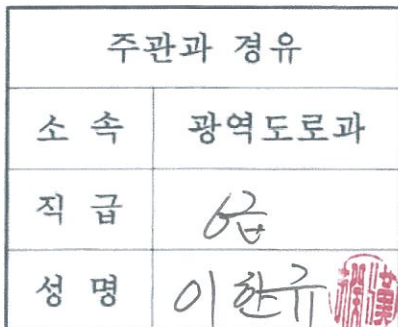 주관과 경유
소 속 광역도로과
직 급 6급
성 명 이한규